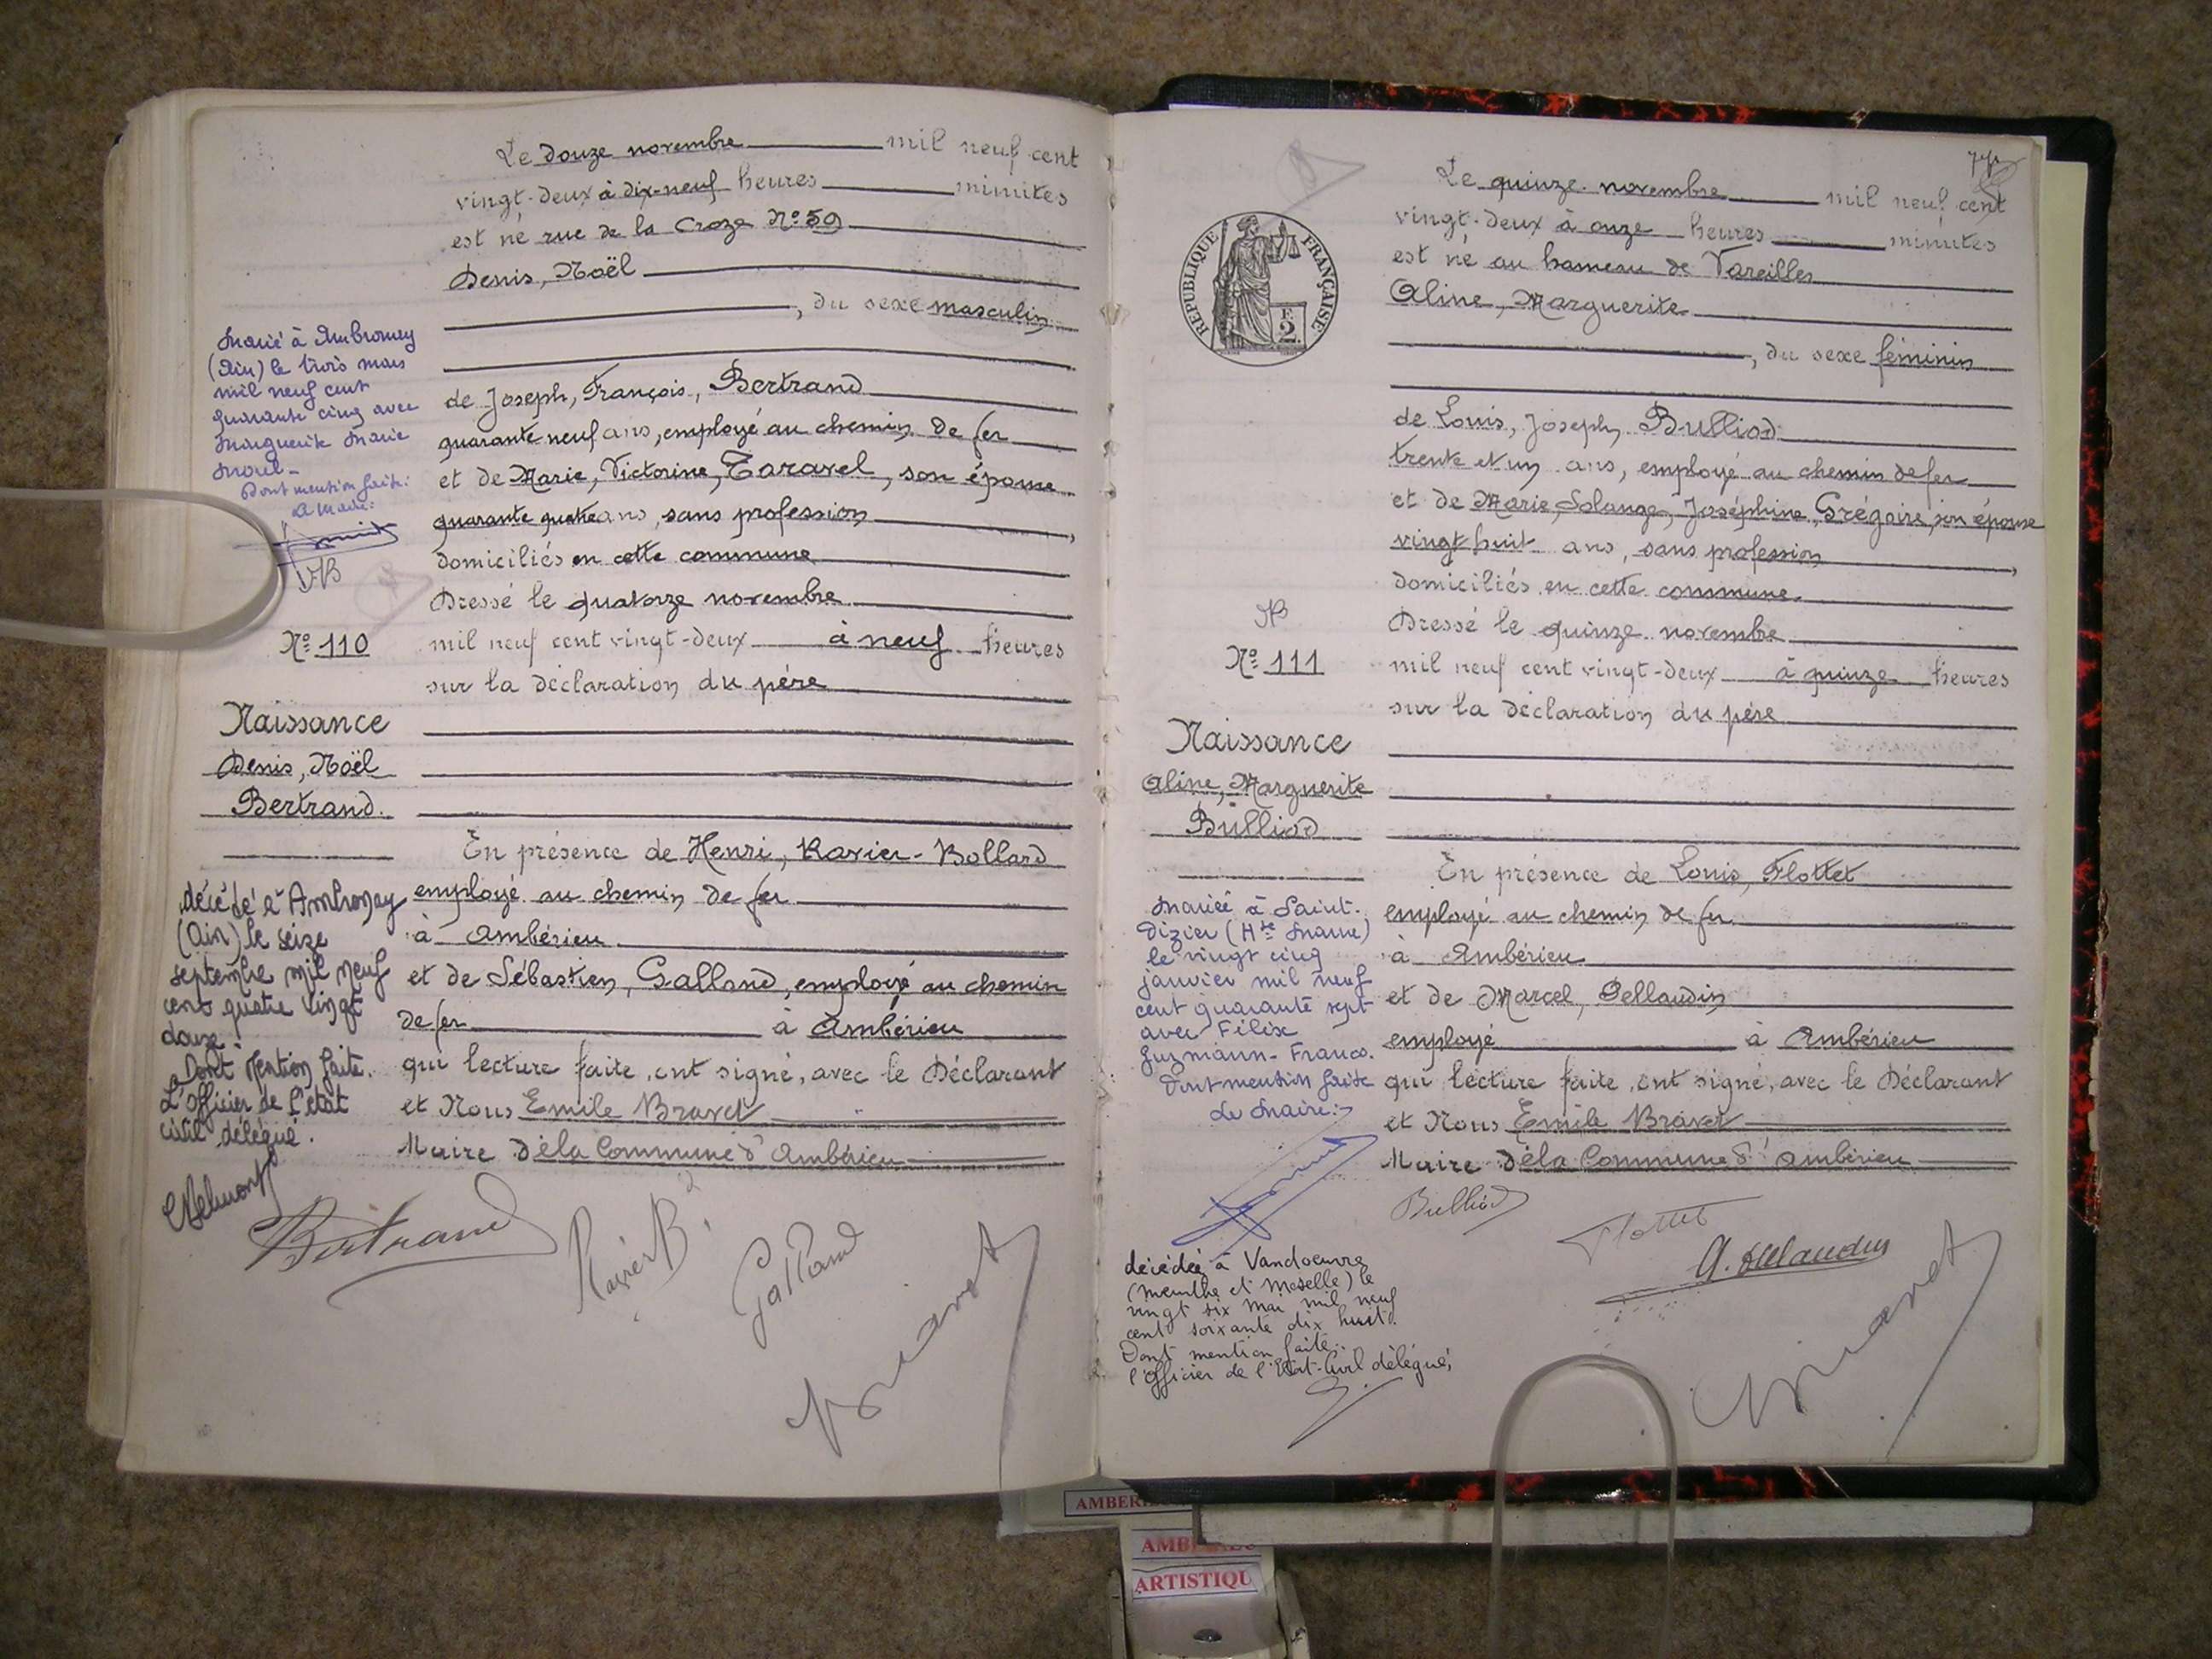 Le douze novembre mil neuf cent
vingt-deux à dix-neuf heures minutes
est né rue de la Croze N° 59
Denis, Noël
, du sexe masculin
de Joseph, François, Bertrand
quarante neuf ans, employé au chemin de fer
et de Marie, Victorine, Taravel, son épouse
quarante quatre ans, sans profession,
domiciliés en cette commune
Dressé le quatorze novembre
mil neuf cent vingt-deux à neuf heures
sur la déclaration du père
En présence de Henri, Ravier-Bollard
employé au chemin de fer
à Ambérieu
et de Sébastien, Galland, employé au chemin
de fer à Ambérieu
qui lecture faite, ont signé, avec le Déclarant
et Nous Emile Bravet
Maire de la Commune d'Ambérieu
Marié à Ambronay
(Ain) le trois mars
mil neuf cent
quarante cinq avec
Marguerite Marie
Dont mention faite:
N° 110
Naissance
Denis, Noël
Bertrand.
décédé à Ambronay
(Ain) le seize
septembre mil neuf
cent quatre vingt
douze.
Dont Mention faite.
L'officier de l'état
civil délégué.
Bertrand
Ravier B.
Galland
Bravet
Le quinze novembre mil neuf cent
vingt-deux à onze heures minutes
est né au hameau de Vareilles
Aline, Marguerite
, du sexe féminin
de Louis, Joseph, Bulliod
trente et un ans, employé au chemin de fer
et de Marie, Solange, Joséphine, Grégoire, son épouse
vingt huit ans, sans profession,
domiciliés en cette commune
Dressé le quinze novembre
mil neuf cent vingt-deux à quinze heures
sur la déclaration du père
En présence de Louis, Flottet
employé au chemin de fer
à Ambérieu
et de Marcel, Dellaudin
employé à Ambérieu
qui lecture faite, ont signé, avec le Déclarant
et Nous Emile Bravet
Maire de la Commune d'Ambérieu
REPUBLIQUE FRANÇAISE
F.
2.
N° 111
Naissance
Aline, Marguerite
Bulliod
Mariée à Saint-
Dizier (Hte Marne)
le vingt cinq
janvier mil neuf
cent quarante sept
avec Félix
Guzmann-Franco.
Dont mention faite
Le Maire:
décédée à Vandoeuvre
(Meurthe et Moselle) le
vingt six mai mil neuf
cent soixante dix huit.
Dont mention faite.
l'Officier de l'Etat-Civil délégué,
Bulliod
Flottet
Bravet
AMBERIEU
ARTISTIQU